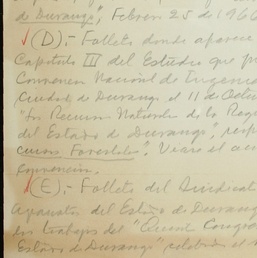 de Durango", Febrero 25 de 1966
(D).- Folleto donde aparece
Capítulo III del Estudio que
Convención Nacional de Ingenie
Ciudad de Durango el 11 de Octu
"Los Recursos Naturales de la Reg
del Estado de Durango",
cursos Forestales". Véase el
Convención.
(E).- Folleto del Sindicat
Aparatos del Estado de Durang
los trabajos del " Congre
Estado de Durango" celebrado el